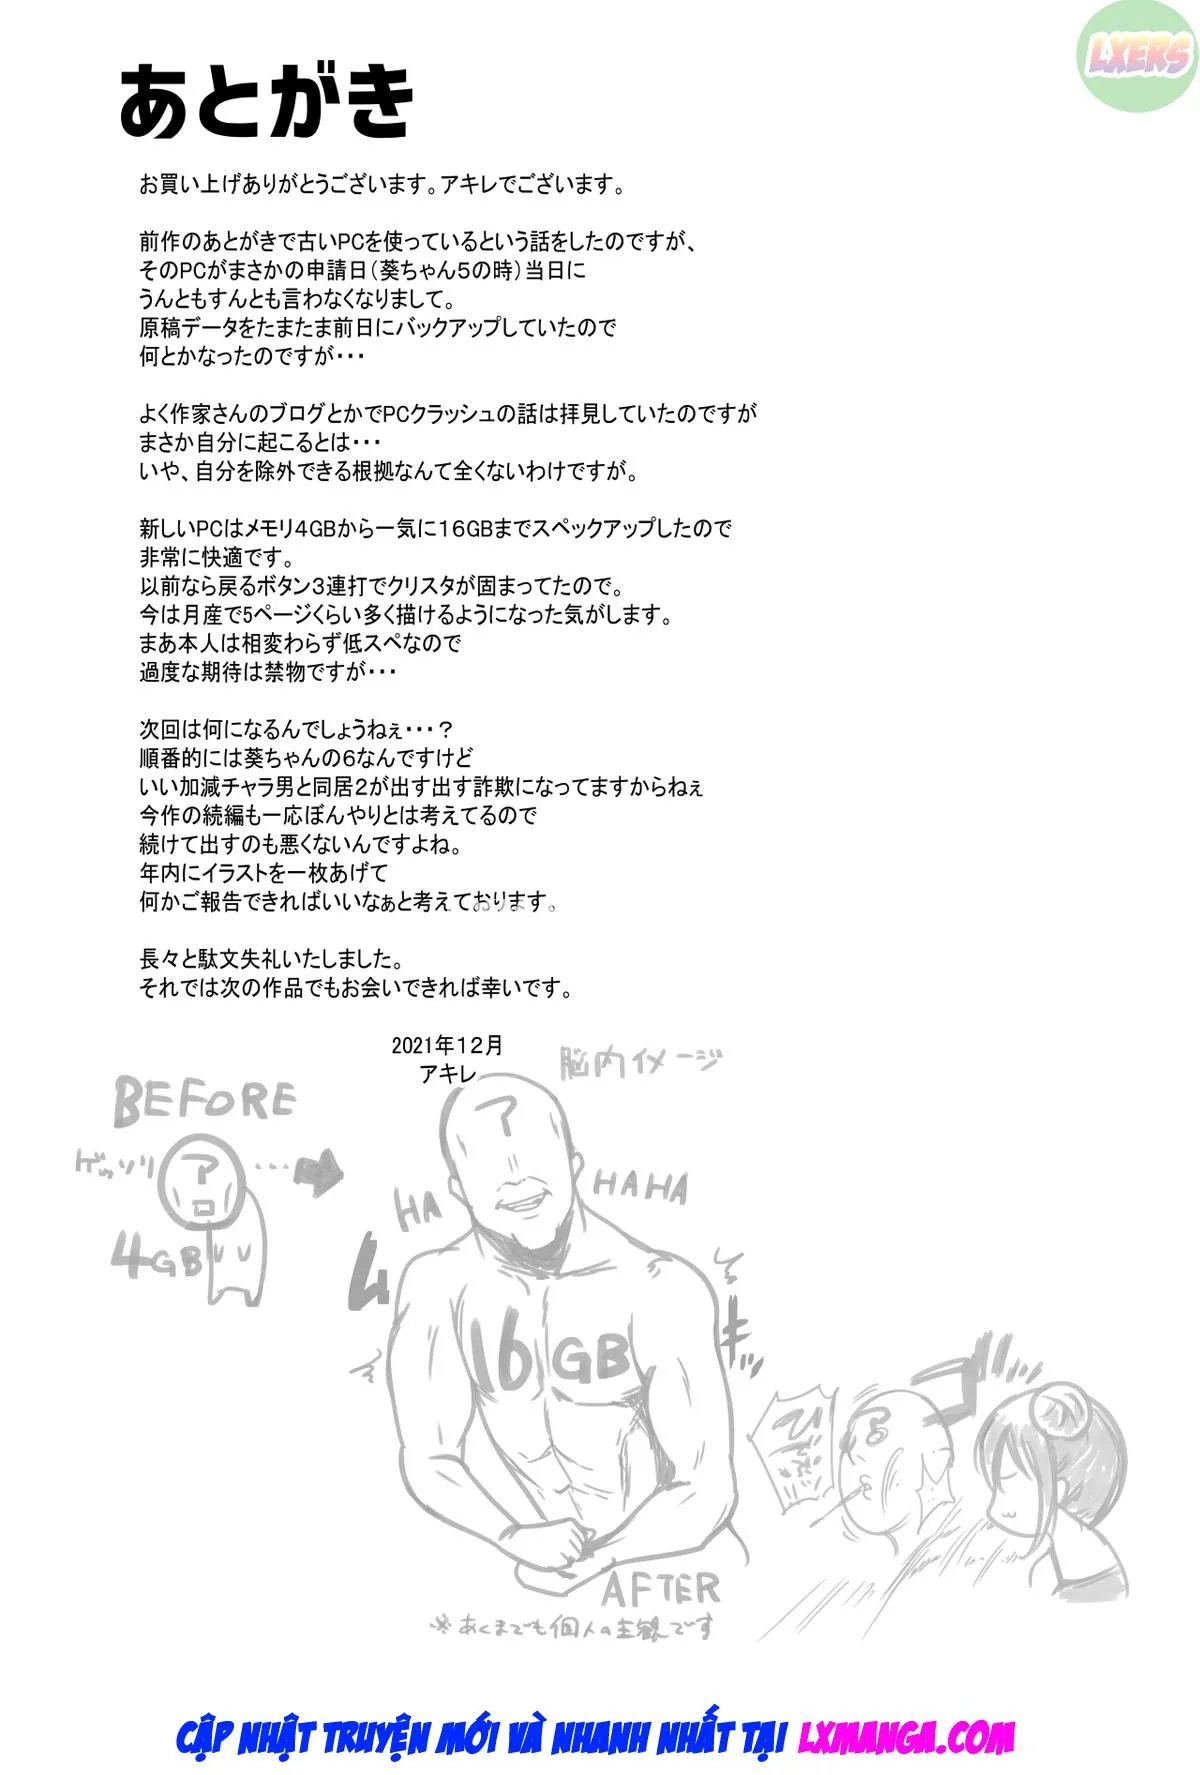 LXERS
あとがき
お買い上げありがとうございます。アキレでございます。
前作のあとがきで古いPCを使っているという話をしたのですが、
そのPCがまさかの申請日（葵ちゃん５の時）当日に
うんともすんとも言わなくなりまして。
原稿データをたまたま前日にバックアップしていたので
何とかなったのですが・・・
よく作家さんのブログとかでPCクラッシュの話は拝見していたのですが
まさか自分に起こるとは・・・
いや、自分を除外できる根拠なんて全くないわけですが。
新しいPCはメモリ４GBから一気に１６GBまでスペックアップしたので
非常に快適です。
以前なら戻るボタン３連打でクリスタが固まってたので。
今は月産で5ページくらい多く描けるようになった気がします。
まあ本人は相変わらず低スペなので
過度な期待は禁物ですが・・・
次回は何になるんでしょうねぇ・・・？
順番的には葵ちゃんの６なんですけど
いい加減チャラ男と同居２が出す出す詐欺になってますからねぇ
今作の続編も一応ぼんやりとは考えてるので
続けて出すのも悪くないんですよね。
年内にイラストを一枚あげて
何かご報告できればいいなぁと考えております。
長々と駄文失礼いたしました。
それでは次の作品でもお会いできれば幸いです。
2021年１２月
アキレ
脳内イメージ
BEFORE
ゲッソリ
ア
4GB
ア
HA
HAHA
ム
キ
16GB
ア
AFTER
※あくまでも個人の主観です
CẬP NHẬT TRUYỆN MỚI VÀ NHANH NHẤT TẠI LXMANGA.COM